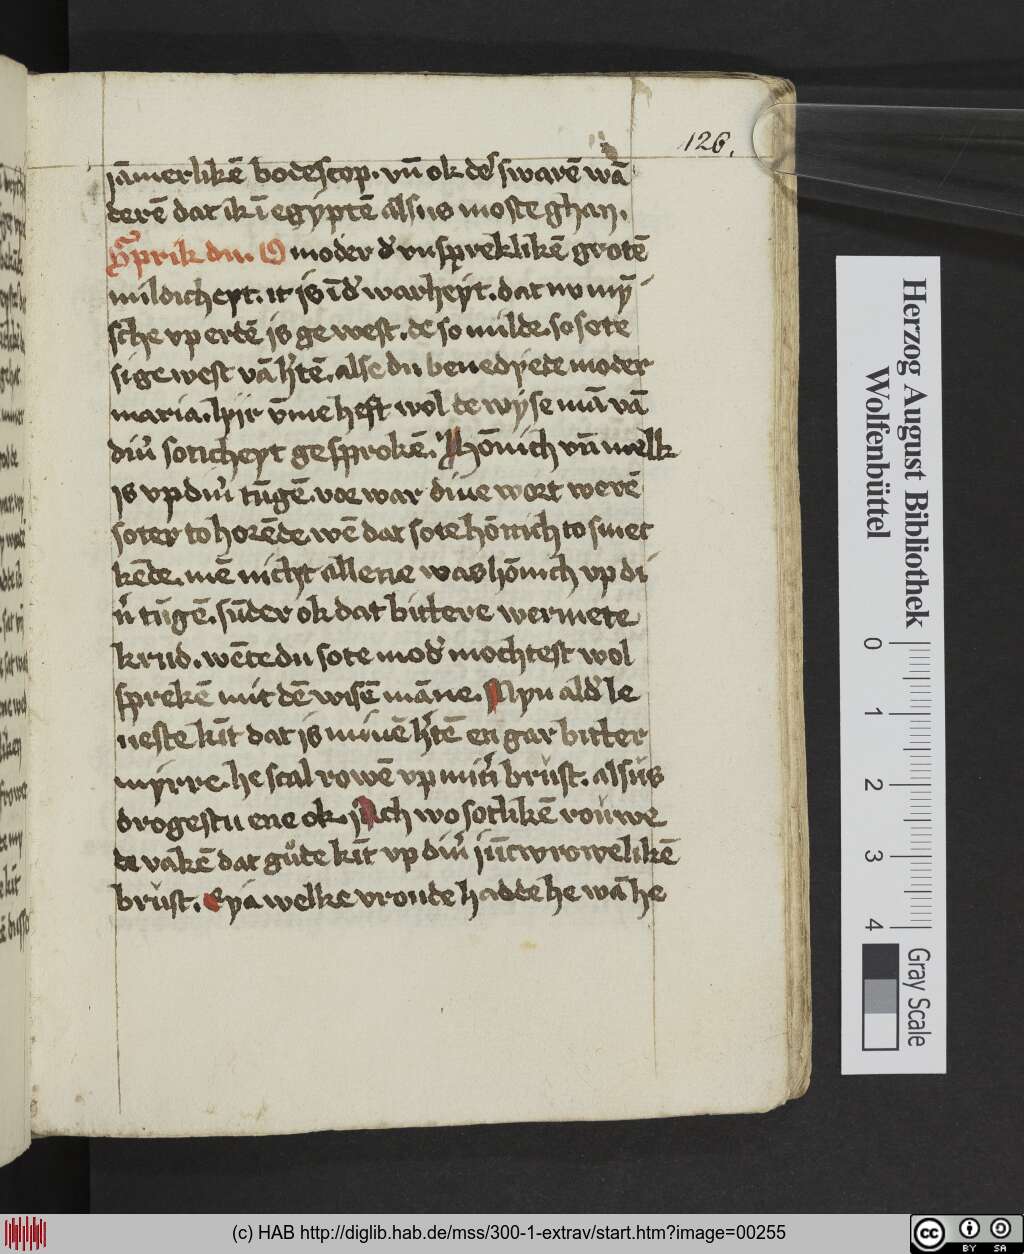 126.
jāmerlikē bodescop. vn̄ ok des swarē wā
derē dat ik ī egyptē alsus moste ghan.
hīrprik dm. O moder d' vnsprekliken grotē
mildicheyt. it is ī d' warheyt. dat nv mȳ
sche vp erdē is ge west. de so milde. so sote
si ge west vā h'tē. alse du benedyede moder
maria. hyir v̄me heft wol de wyse mā vā
din' soticheyt ge sprokē. Hōnich vn̄ melk
is vp din' tūgē. vor war dine wort werē
soter to horēde wē dat sote hōnich to smec
kēde. mē nicht allene was hōnich vp di
n' tūgē. sūder ok dat bittere wermete
krud. wēte du sote mod' mochtest wol
sprekē mit dē wisē māne. Myn ald' le
ueste kīt dat is minē h'tē en gar bitter
myrre. he scal rowē vp min' brůst. alsus
drogestu ene ok. Ach wo sotlikē rouwe
de vakē dat gůde kīt vp din' jūcwrowelikē
brůst. Eya welke vroude hadde he wā he
Herzog August Bibliothek
Wolfenbüttel
0 1 2 3 4
Gray Scale
(c) HAB http://diglib.hab.de/mss/300-1-extrav/start.htm?image=00255
cc BY SA